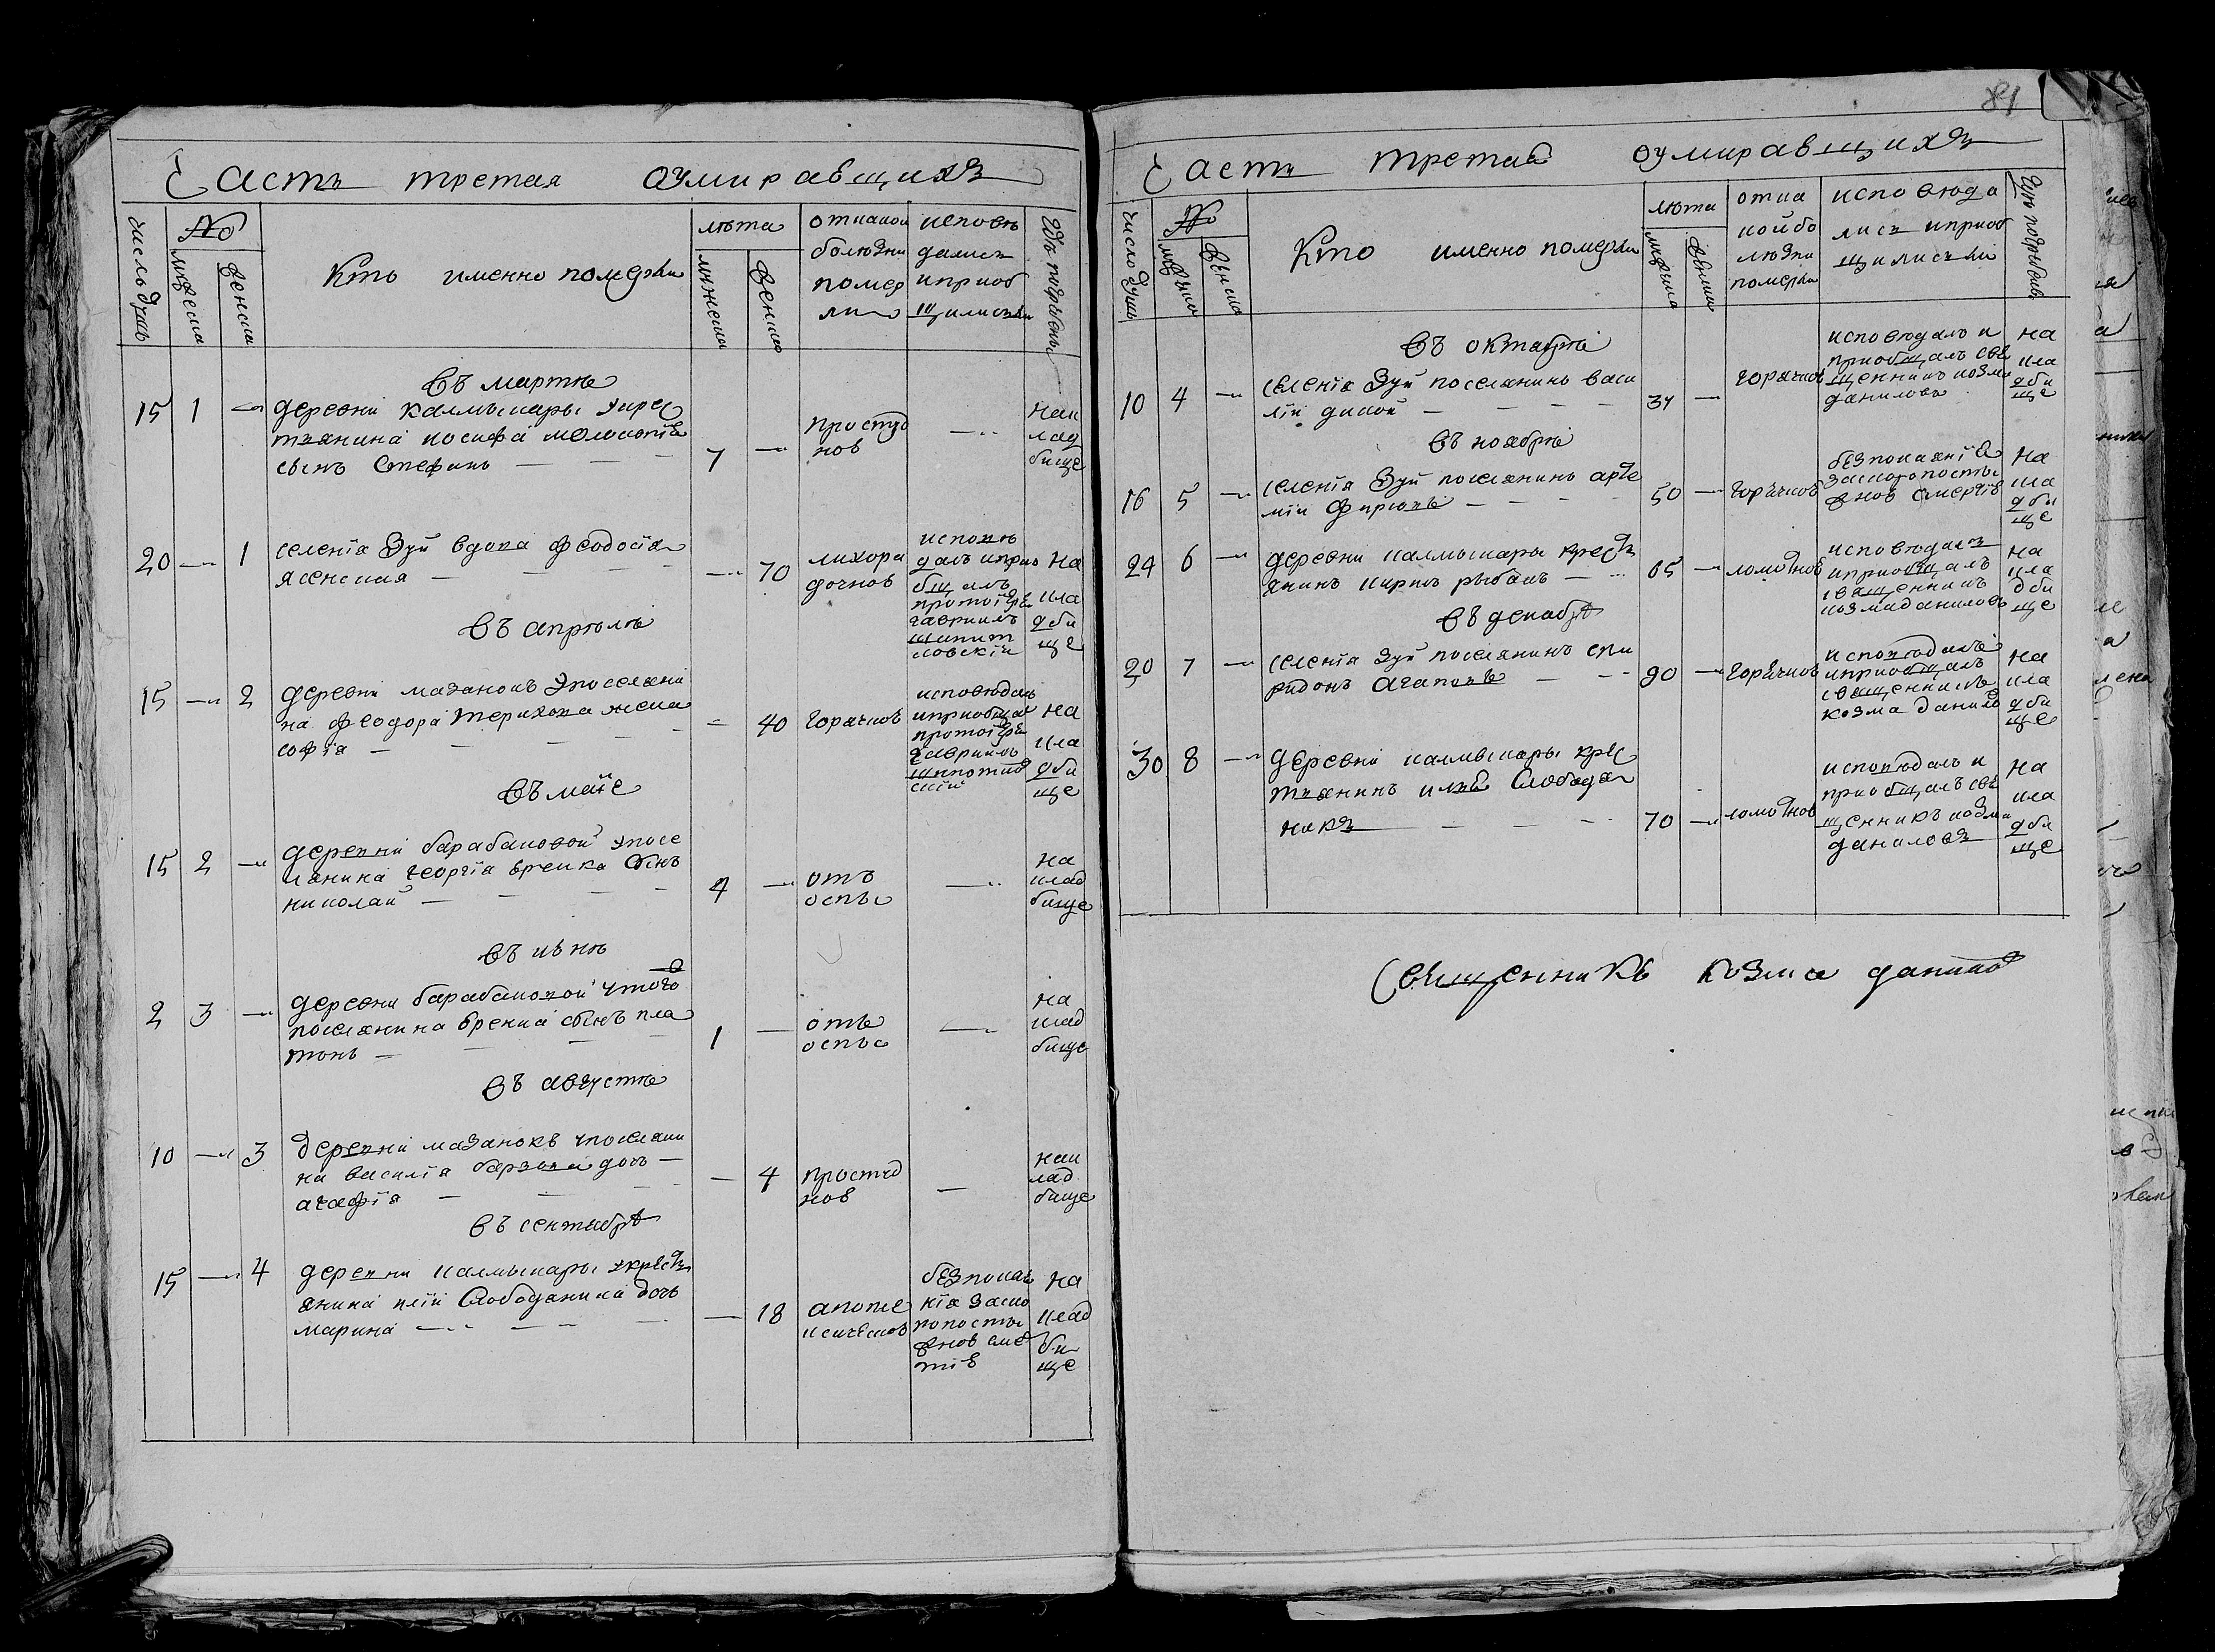 Часть третая оумиравщихъ
число душъ
№
мужеска
женска
Кто именно померли
лѣта
мужеска
женска
отчакои
болѣзни
помер
ли
исповѣ
дались
иприоб
щилисьли
Где погребены
въ мартѣ
15 1 — деревни калмыкары укрес
тьянина иосифа
сынъ Стефанъ — — —
7 —
простуд
нов
— 
нак
лад
бище
20 — 1 селенія Зуи вдова феодосія
Ясенская — — —
— 70
лихора
дочнов
исповѣ
далъ иприо
бщалъ
протоіере
гавріилъ
На
кла
дби
ще
въ апрѣлѣ
15 — 2 деревни мазанокъ упоселяни
на феодора терихова жена
софія — — — —
— 40
горячков
исповѣдалъ
иприобщал
протоіере
гавріилъ
На
кла
дби
ще
въ маіе
15 2 — деревни барабановой упосе
лянина георгія вреика сынъ
николай — — — —
4 —
отъ
оспы
—
на
клад
бище
въ июнѣ
2 3 — деревни барабановой утого
поселянина сынъ пла
тонъ — — — —
1 —
отъ
оспы
—
на
клад
бище
въ августѣ
10 — 3 деревни мазанокъ упосляни
на василія дочь —
агафія — — —
— 4
простуд
нов
—
нак
лад
бище
въ сентябрѣ
15 — 4 деревни калмыкары укресть
янина иліи Слободяника дочь
марина — — —
— 18
апопле
ксическов
безпокая
нія заско
ропости
жнов сме
тіе
На
клад
би
ще
81
Часть третая оумиравщихъ
число душъ
№
мужеска
женска
Кто именно померли
лѣта
мужеска
женска
отча
койбо
лѣзни
померли
исповѣда
лись иприоб
щилисьли
Где погребены
въ октабрѣ
10 4 — селенія Зуи поселянинъ васи
лій дикой — — — —
34 —
горячков
исповѣдалъ и
приобщалъ свя
щенникъ козма
даниловъ
На
кла
дби
ще
въ ноябрѣ
16 5 — селенія Зуи поселянинъ арте
мій — — —
50 —
горячков
безпокаяніе
заскоропости
жнов смертіе
На
кла
дби
ще
24 6 — деревни калмыкары кресть
янинъ кирилъ рыбакъ — —
65 —
ломотнов
исповѣдалъ
иприобщалъ
священникъ
козмаданиловъ
На
кла
дби
ще
въ декабрѣ
20 7 — селенія Зуи поселянинъ спи
ридонъ агаповъ — — —
90 —
горячков
исповѣдалъ
иприобщалъ
священникъ
козма данило
На
кла
дби
ще
30 8 — деревни калмыкары крес
тьянинъ илья Слободя
никъ — — — —
70 —
ломотнов
исповѣдалъ и
приобщалъ свя
щенникъ козма
даниловъ
На
кла
дби
ще
Священникъ козма данилов